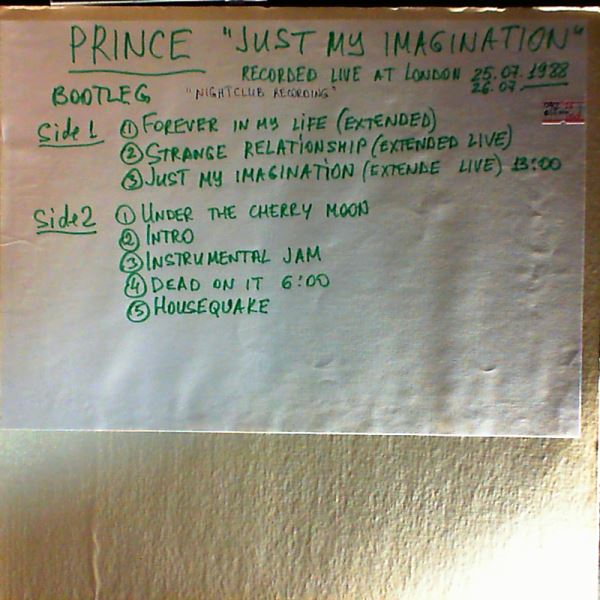 PRINCE "JUST MY IMAGINATION"
RECORDED LIVE AT LONDON 25.07.1988
26.07.
BOOTLEG "NIGHTCLUB RECORDING"
Side 1 ① FOREVER IN MY LIFE (EXTENDED)
② STRANGE RELATIONSHIP (EXTENDED LIVE)
③ JUST MY IMAGINATION (EXTENDE LIVE) 13:00
Side 2 ① UNDER THE CHERRY MOON
② INTRO
③ INSTRUMENTAL JAM
④ DEAD ON IT 6:00
⑤ HOUSEQUAKE